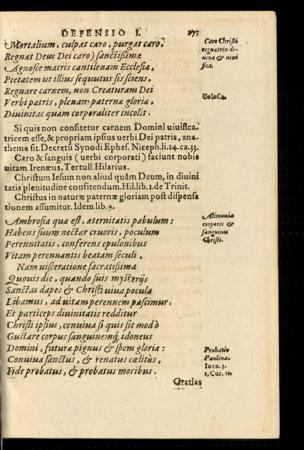 DEFENSIO I.
Mortalium, culpat caro, purgat caro,
Regnat Deus Dei caro) sanctißima
Agnosce matris cantilenam Ecclesiæ,
Pietatem ut illius sequutus sis sciens,
Regnare carnem, non Creaturam Dei
Verbi patris, plenam paternæ gloriæ,
Divinitas quam corporaliter incolit.
Si quis non confitetur carnem Domini vivifica-
tricem esse, & propriam ipsius verbi Dei patris, ana-
thema sit. Decretū Synodi Ephes. Niceph. li. 14. ca. 33.
Caro & sanguis (verbi corporati) faciunt nobis
vitam. Irenæus, Tertull. Hilarius.
Christum Iesum non aliud quàm Deum, in divini
tatis plenitudine confitendum. Hil. lib. 1. de Trinit.
Christus in naturæ paternæ gloriam post dispensa
tionem assumitur. Idem lib. 9.
Ambrosia quæ est, æternitatis pabulum:
Habens suum nectar cruoris, poculum
Perennitatis, conferens epulonibus
Vitam perennantis beatam seculi.
Nam visceratione sacratißima
Quovis die, quando suis mysterijs
Sanctas dapes & Christi viva pocula
Libamus, ad vitam perennem pascimur.
Et particeps divinitatis redditur
Christi ipsius, conviva si quis sit modò
Gustare corpus sanguinemq́; idoneus
Domini, futuræ pignus & spem gloriæ:
Conviva sanctus, & renatus cœlitùs,
Fide probatus, & probatus moribus.
Gratias
Caro Christi
regnatrix di-
vina & vivi
fica.
Coloss. 2.
corporis &
sanguinis
Christi.
Probatio
Paulina.
Ioan. 3.